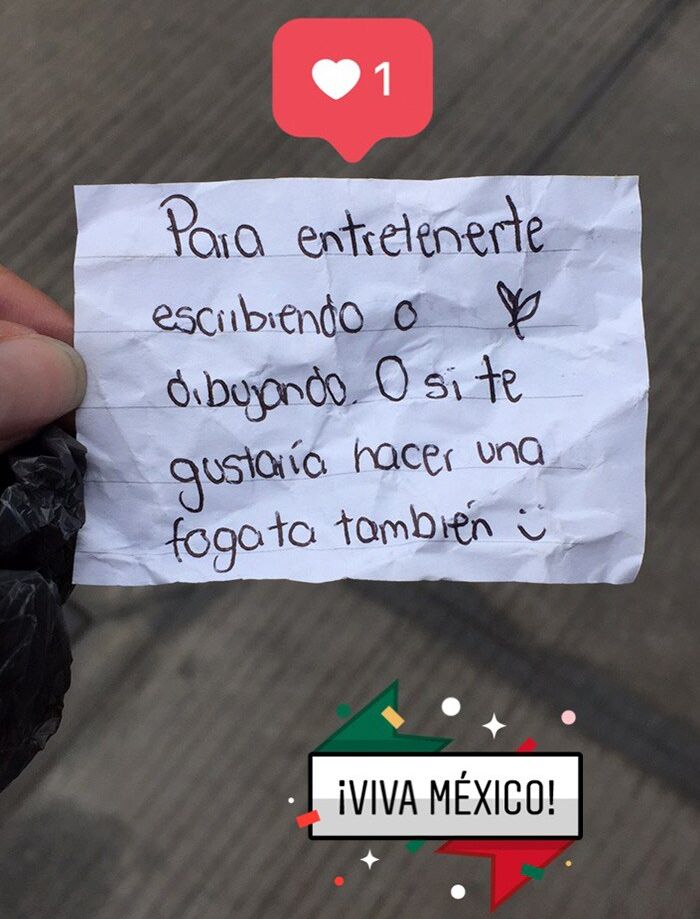 1
Para entretenerte
escribiendo o
dibujando. O si te
gustaría hacer una
fogata también :)
¡VIVA MÉXICO!